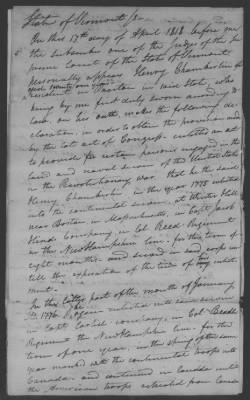 State of Vermont, ss.
On this 17th day of April 1818 before me
the subscriber one of the judges of the su
preme Court of the State of Vermont
personally appears Henry Chamberlin
aged seventy one years
resident in in said state, who
being by me first duly sworn according to
law, on his oath, make the following de-
claration, in order to obtain the provision made
by the late act of Congress entitled an act
to provide for certain persons engaged in the
land and naval service of the United States
in the Revolutionary war. that he the said
Henry Chamberlin in the year 1775 enlisted
into the continental service, at Winter Hill
near Boston in Massachusetts, in Capt.
Hinds Company, in Col. Reed Regiment
in the New Hampshire line. for the term of
eight months. and served in said corps un
till the expiration of the time of my enlist
ment.
In the latter part of the month of January
1776 enlisted into same service
in Capt. company, in Col.
Regiment the New Hampshire line. for the
term of one year, in the spring after same
year marched with the continental troops into
Canada, and continued in Canada until
the American troops retreated from Canada